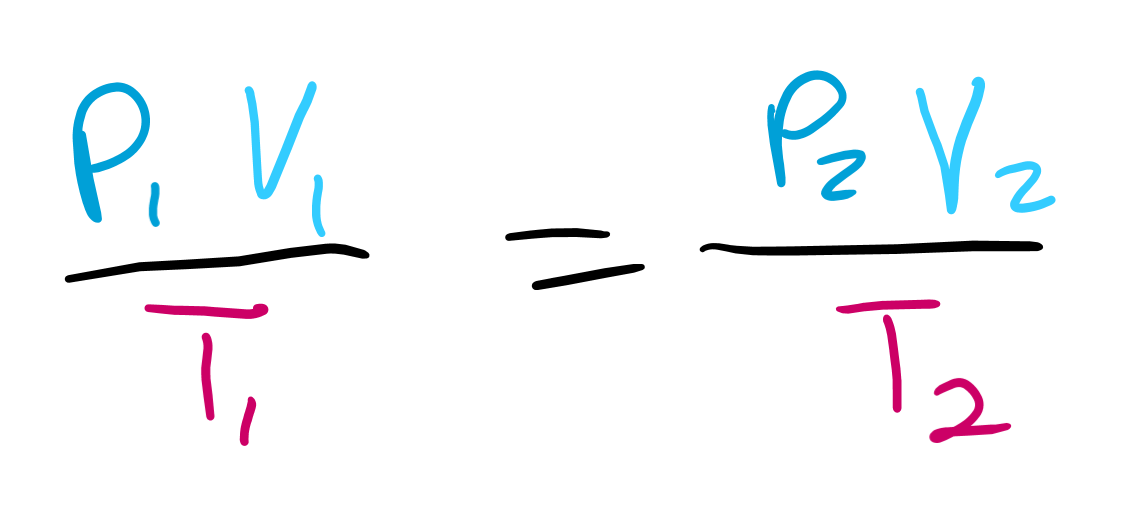 P₁ V₁ / T₁ = P₂ V₂ / T₂